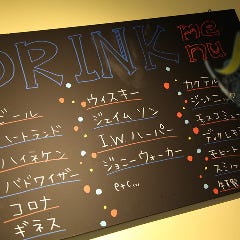 DRINK menu
ビール
ハートランド
ハイネケン
バドワイザー
コロナ
ギネス
ウィスキー
ジェイムソン
I.W ハーパー
ジョニーウォーカー
etc...
カクテル
ジントニッ
モスコミュー
モヒート